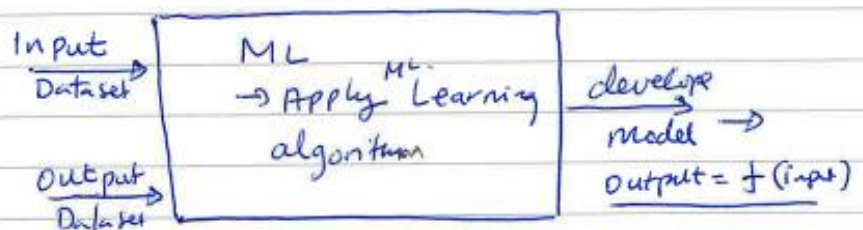 Input
Dataset
Output
Dataset
ML
→ Apply ML. Learning
algorithm
develope
model →
output = f (input)